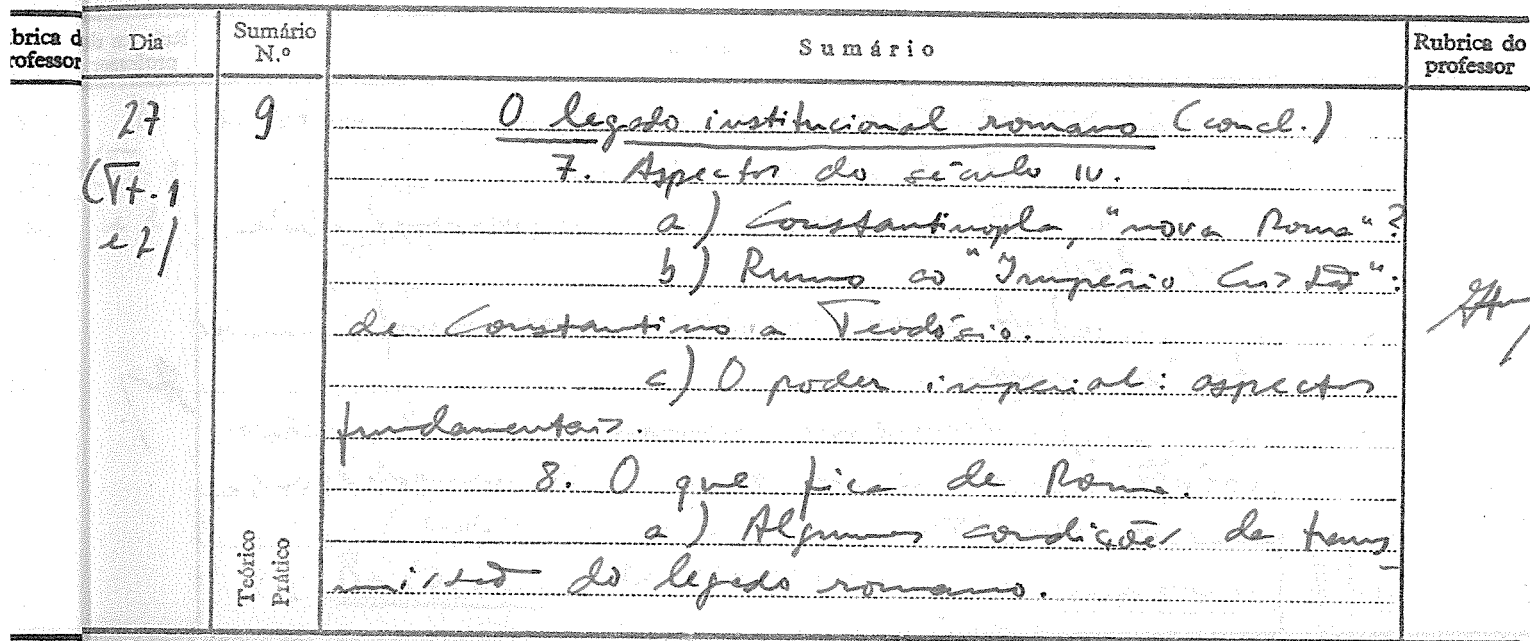 brica d
rofessor
Dia
Sumário
N.º
Sumário
Rubrica do
professor
27
9
O legado institucional romano (concl.)
7. Aspectos do século IV.
(Tt. 1
a) Constantinopla, "nova Roma"?
e 2)
b) Rumo ao "Império Cristão":
de Constantino a Teodósio.
c) O poder imperial: aspectos
fundamentais.
8. O que fica de Roma.
a) Algumas condições da trans-
missão do legado romano.
Teórico
Prático